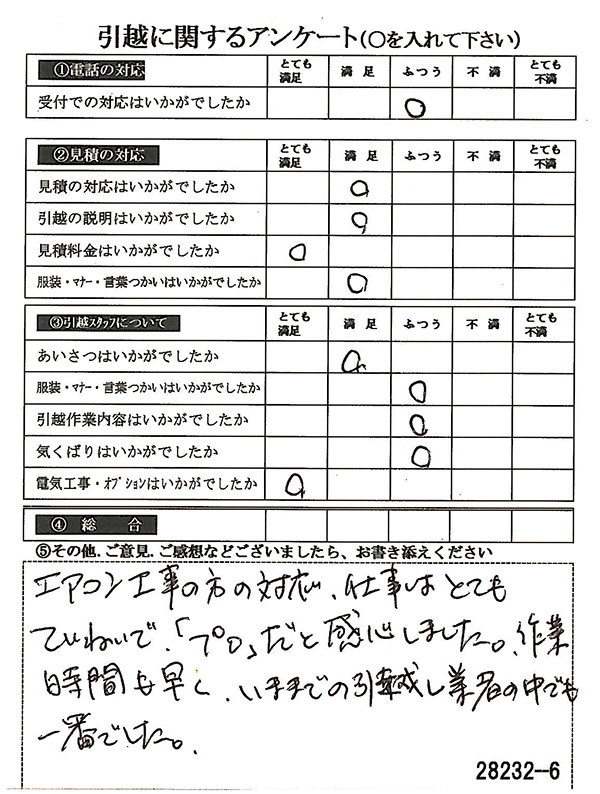 引越に関するアンケート(○を入れて下さい)
①電話の対応 とても満足 満足 ふつう 不満 とても不満
受付での対応はいかがでしたか ○
②見積の対応 とても満足 満足 ふつう 不満 とても不満
見積の対応はいかがでしたか ○
引越の説明はいかがでしたか ○
見積料金はいかがでしたか ○
服装・マナー・言葉つかいはいかがでしたか ○
③引越スタッフについて とても満足 満足 ふつう 不満 とても不満
あいさつはいかがでしたか ○
服装・マナー・言葉つかいはいかがでしたか ○
引越作業内容はいかがでしたか ○
気くばりはいかがでしたか ○
電気工事・オプションはいかがでしたか ○
④ 総 合
⑤その他、ご意見、ご感想などございましたら、お書き添えください
エアコン工事の方の対応、仕事はとても
ていねいで、「プロ」だと感心しました。作業
時間も早く、いままでの引越し業者の中でも
一番でした。
28232-6